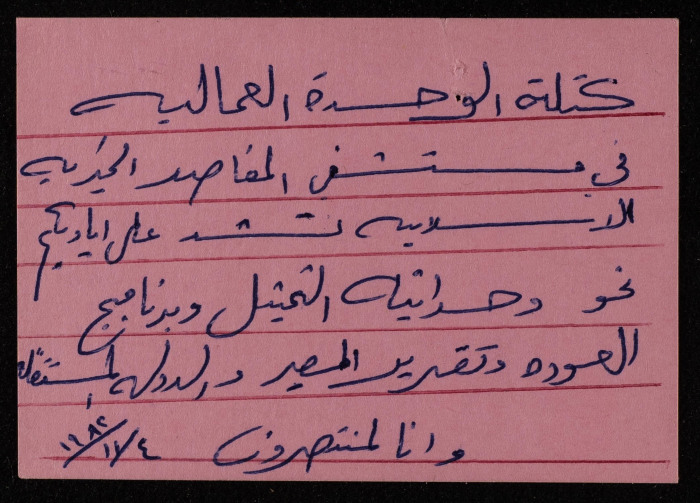 كتلة الوحدة العماليه
في مستشفى المقاصد الخيريه
الاسلاميه تشد على اياديكم
نحو وحدانية التمثيل وبرنامج
العوده وتقرير المصير والدوله المستقله
وانا لمنتصرون ٤/١١/١٩٨٢